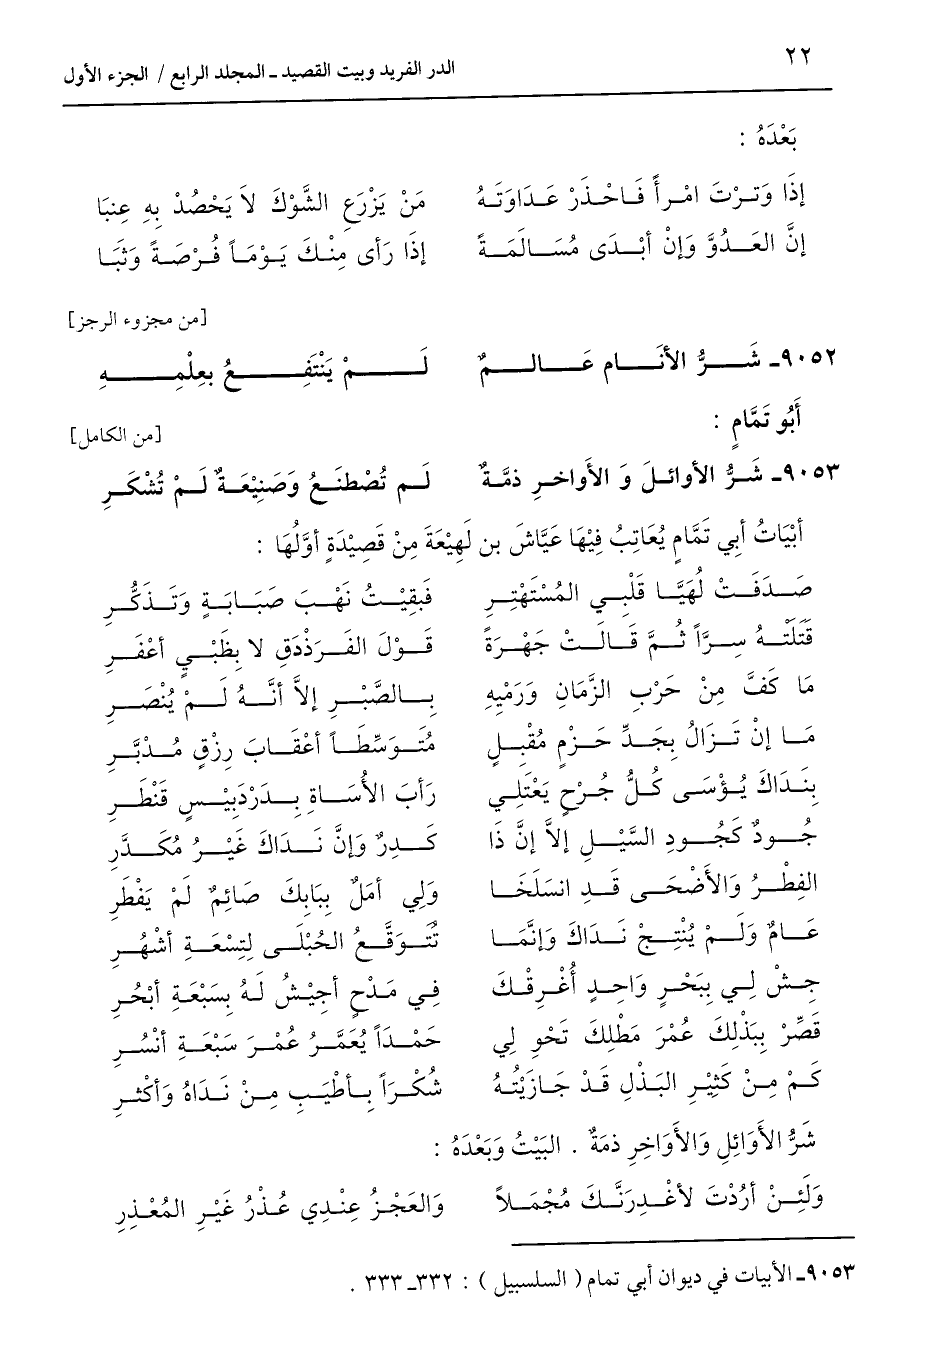 ٢٢ الدر الفريد وبيت القصيد ـ المجلد الرابع / الجزء الأول
بَعْدَهُ :
إِذَا وَتَرْتَ امْرأً فَاحْذَرْ عَدَاوَتَهُ مَنْ يَزْرَعِ الشَّوْكَ لاَ يَحْصُدْ بِهِ عِنبَا
إِنَّ العَدُوَّ وَإِنْ أَبْدَى مُسَالَمَةً إِذَا رَأى مِنْكَ يَوْمَاً فُرْصَةً وَثَبَا
[من مجزوء الرجز]
٩٠٥٢ـ شَرُّ الأَنَامِ عَالِمٌ لَمْ يَنْتَفِعُ بعِلْمِهِ
أَبُو تَمَّامٍ :
[من الكامل]
٩٠٥٣ـ شَرُّ الأَوائلَ وَ الأَواخرِ ذمَّةٌ لَم تُصْطَنَعُ وَصَنِيْعَةٌ لَمْ تُشْكَرِ
أَبْيَاتُ أَبي تَمَّامٍ يُعَاتِبُ فِيْهَا عَيَّاشَ بن لَهِيْعَةَ مِنْ قَصِيْدَةٍ أَوَّلُهَا :
صَدَفَتْ لُهَيَّا قَلْبِي المُسْتَهْتِرِ فَبَقِيْتُ نَهْبَ صَبَابَةٍ وَتَذَكُّرِ
قَتَلَتْهُ سِرَّاً ثُمَّ قَالَتْ جَهْرَةً قَوْلَ الفَرَذْدَقِ لا بِظَبْيٍ أَعْفَرِ
مَا كَفَّ مِنْ حَرْبِ الزَّمَانِ وَرَمْيِهِ بالصَّبْرِ إلاَّ أَنَّهُ لَمْ يُنْصَرِ
مَا إِنْ تَزَالُ بِجَدِّ حَزْمٍ مُقْبِلٍ مُتَوَسِّطاً أَعْقَابَ رِزْقٍ مُدْبَّرِ
بِنَدَاكَ يُؤْسَى كُلُّ جُرْحٍ يَعْتَلِي رَأبَ الأُسَاةِ بِدَرْدَبِيْسٍ قَنْطَرِ
جُودٌ كَجُودِ السَّيْلِ إلاَّ إنَّ ذَا كَدِرٌ وَإنَّ نَدَاكَ غَيْرُ مُكَدَّرِ
الفِطْرُ وَالأَضْحَى قَدِ انسَلَخَا وَلِي أَمَلٌ بِبَابِكَ صَائِمٌ لَمْ يَفْطَرِ
عَامٌ وَلَمْ يُنْتِجْ نَدَاكَ وَإنَّمَا تُتَوَقَّعُ الحُبْلَى لِتِسْعَةِ أَشْهُرِ
جِشْ لِي بِبَحْرٍ وَاحِدٍ أُغْرِقْكَ فِي مَدْحٍ أَجِيْشُ لَهُ بِسَبْعَةِ أَبْحُرِ
قَصِّرْ بِبَذْلِكَ عُمْرَ مَطْلِكَ تَحْوِ لِي حَمْدَاً يُعَمَّرُ عُمْرَ سَبْعَةِ أَنْسُرِ
كَمْ مِنْ كَثِيْرِ البَذْلِ قَدْ جَازَيْتُهُ شُكْرَاً بِأَطْيَبِ مِنْ نَدَاهُ وَأَكْثرِ
شَرُّ الأَوَائِلِ وَالأَوَاخِرِ ذمَةٌ . البَيْتُ وَبَعْدَهُ :
وَلَئِنْ أَرَدْتَ لأَعْدِرَنَّكَ مُجْمَلاً وَالعَجْزُ عِنْدِي عُذْرُ غَيْرِ المُعْذِرِ
٩٠٥٣ـ الأبيات في ديوان أبي تمام ( السلسبيل ) : ٣٣٢ـ ٣٣٣ .